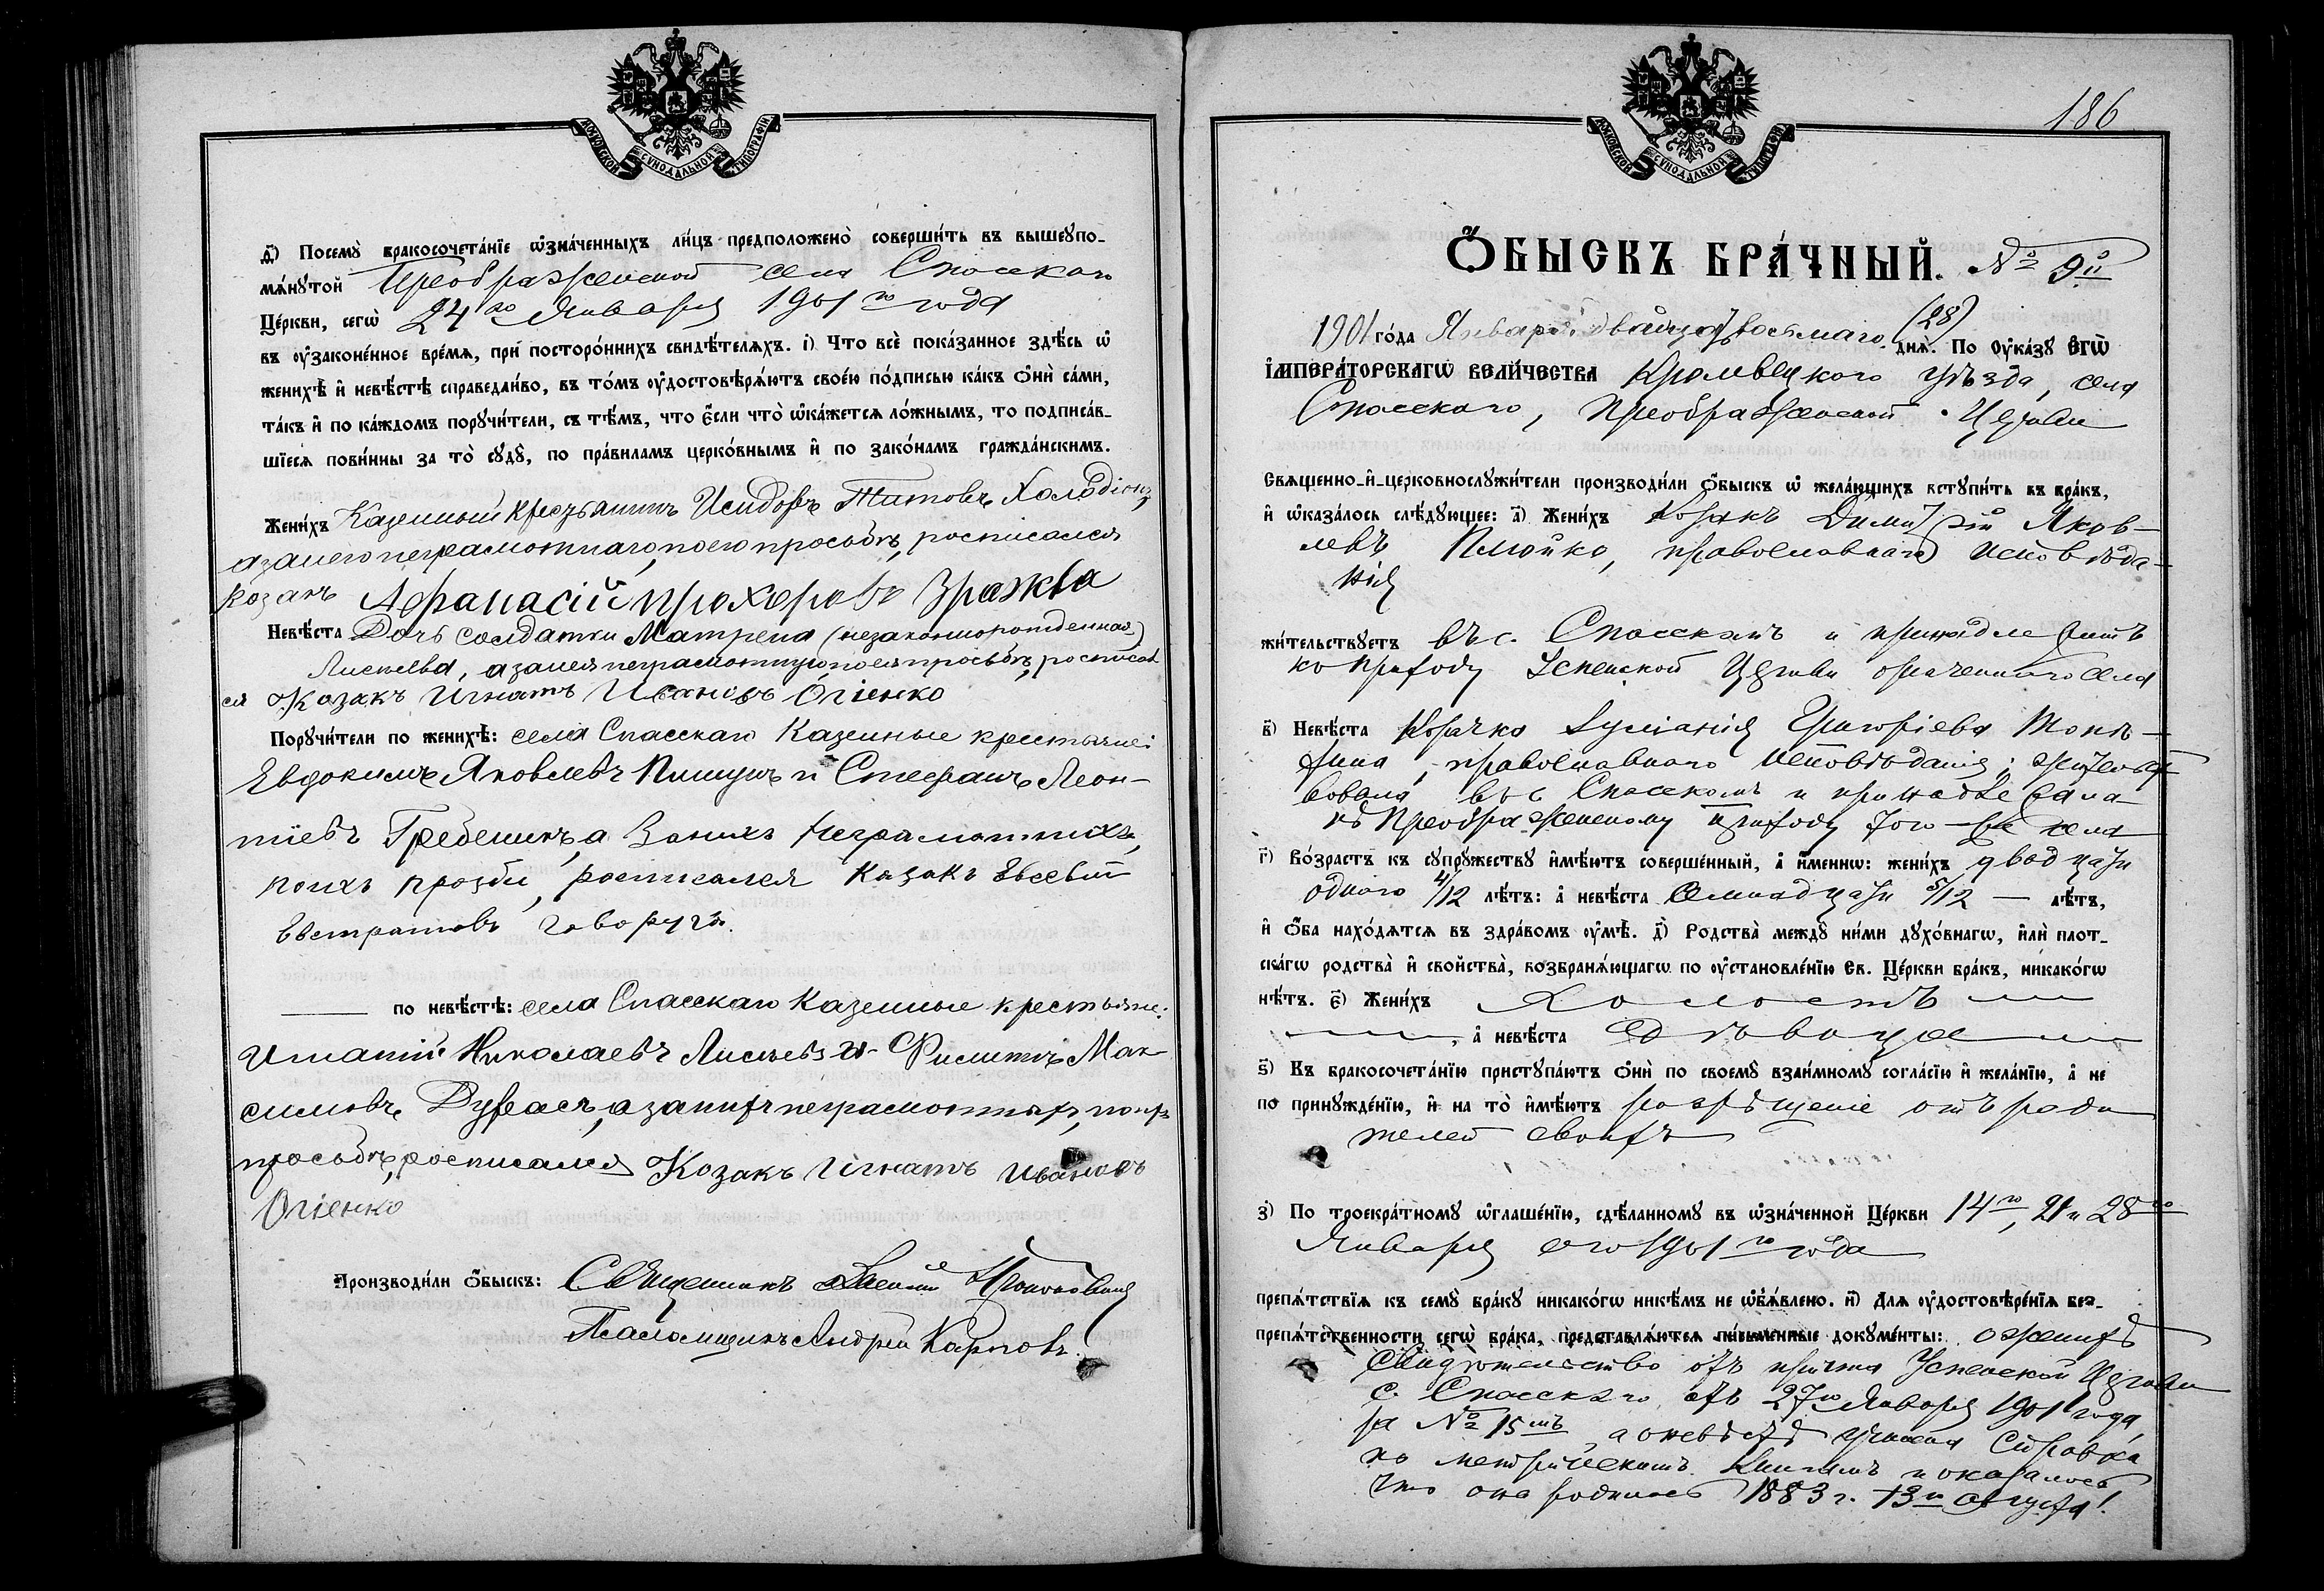 МОСКОВСКОЙ СѴНОДАЛЬНОЙ ТИПОГРАФІИ
д҃) Посемꙋ̀ бракосочета́нїе ѡ҆зна́ченныхъ ли́цъ предположено̀ соверши́ть въ вышеꙋпо-
мѧ́нꙋтой Преображенской села Спасскаго
Це́ркви, сегѡ̀ 24го Января 1901го года
въ ᲂу҆законе́нное вре́мѧ, при посторо́ннихъ свидѣ́телѧхъ. і҃) Что всѐ пока́занное здѣ́сь ѡ҆
женихѣ̀ и҆ невѣ́стѣ справедли́во, въ то́мъ ᲂу҆достовѣрѧ́ютъ свое́ю по́дписью ка́къ ѻ҆нѝ са́ми,
та́къ и҆ по ка́ждомъ порꙋчи́тели, съ тѣ́мъ, что є҆́сли что̀ ѡ҆ка́жетсѧ ло́жнымъ, то подписа́в-
шїесѧ пови́нны за то̀ сꙋдꙋ̀, по пра́виламъ церко́внымъ и҆ по зако́намъ гражда́нскимъ.
Жени́хъ Казенный крестьянинъ Исидоръ Титовъ
а за него неграмотнаго, по его просьбѣ, росписался
козакъ Афанасій Прохоровъ Зражва
Невѣ́ста Дочь солдатки Матрена (незаконнорожденная)
Лисьева, а за нея неграмотную, по ея просьбѣ, росписал
ся Козакъ Игнатъ Ивановъ Огіенко
Порꙋчи́тели по женихѣ̀: села Спасскаго Казенные крестьяне:
Евдокимъ Яковлевъ Пищунъ и Стефанъ Леон-
тіевъ Гребеникъ, а за нихъ неграмотныхъ,
по ихъ прозбѣ, росписался казакъ Евсевій
Евстратовъ Говорунъ.
по невѣ́стѣ: села Спасскаго Казенные крестьяне:
Игнатій Николаевъ Лисьевъ и Филиппъ Мак-
симовъ а за нихъ неграмотныхъ, по ихъ
просьбѣ, росписался Козакъ Игнатъ Ивановъ
Огіенко
Производи́ли ѻ҆́быскъ: Священникъ
Псаломщикъ Андрей Карповъ.
186
МОСКОВСКОЙ СѴНОДАЛЬНОЙ ТИПОГРАФІИ
Ѻ҆́БЫСКЪ БРА́ЧНЫЙ. № 9й
1901 го́да Января двадцать восьмаго (28) днѧ̀. По Оу҆ка́зꙋ Є҆гѡ̀
І҆мпера́торскагѡ вели́чества Кролевецкого уѣзда, села
Спасского, Преображенской Церкви
Свѧщенно-и҆-церковнослꙋжи́тели производи́ли ѻ҆́быскъ ѡ҆ жела́ющихъ встꙋпи́ть въ бра́къ,
и҆ ѡ҆каза́лось слѣ́дꙋющее: а҃) Жени́хъ Козакъ Димитрій Яков-
левъ Плюйко, православнаго исповѣда-
нія
жи́тельствꙋетъ въ с. Спасскомъ и принадлежитъ
ко приходу Успенской Церкви означеннаго села
в҃) Невѣ́ста Козачка Григоріева
православнаго исповѣданія; жительст-
вовала въ с. Спасскомъ и принадлежала
къ Преображенскому приходу того-же села
г҃) Во́зрастъ къ сꙋпрꙋ́жествꙋ и҆мѣ́ютъ соверше́нный, а҆ и҆́меннѡ: жени́хъ двадцати
одного 4/12 лѣ́тъ: а҆ невѣ́ста семнадцати 5/12 — лѣ́тъ,
и҆ ѻ҆́ба нахо́дѧтсѧ въ здра́вомъ ᲂу҆мѣ̀. д҃) Родства̀ междꙋ̀ ни́ми дꙋхо́внагѡ, и҆лѝ плот-
ска́гѡ родства̀ и҆ сво́йства, возбранѧ́ющагѡ по ᲂу҆становле́нїю Св. Це́ркви бра́къ, никако́гѡ
нѣ́тъ. є҃) Жени́хъ холостъ
, а҆ невѣ́ста дѣвица
ѕ҃) Къ бракосочета́нїю пристꙋпа́ютъ ѻ҆нѝ по своемꙋ̀ взаи́мномꙋ согла́сїю и҆ жела́нїю, а҆ не
по принꙋжде́нїю, и҆ на то̀ и҆мѣ́ютъ разрѣшеніе отъ роди
телей своихъ
з҃) По троекра́тномꙋ ѡ҆глаше́нїю, сдѣ́ланномꙋ въ ѡ҆зна́ченной Це́ркви 14го, 21 и 28го
Января сего 1901го года
препѧ́тствїѧ къ семꙋ̀ бра́кꙋ никако́гѡ никѣ́мъ не ѡ҆б̾ѧ́влено. и҃) Для ᲂу҆достовѣре́нїѧ без-
препѧ́тственности сегѡ̀ бра́ка, представлѧ́ютсѧ пи́сьменные докꙋме́нты: о женихѣ
Свидѣтельство отъ причта Успенской Церкви
с. Спасскаго отъ 27го Января 1901 года
за № 15мъ, а о невѣстѣ учинена справка
по метрическимъ книгамъ и оказалось
что она родилась 1883 г. 13го Августа.